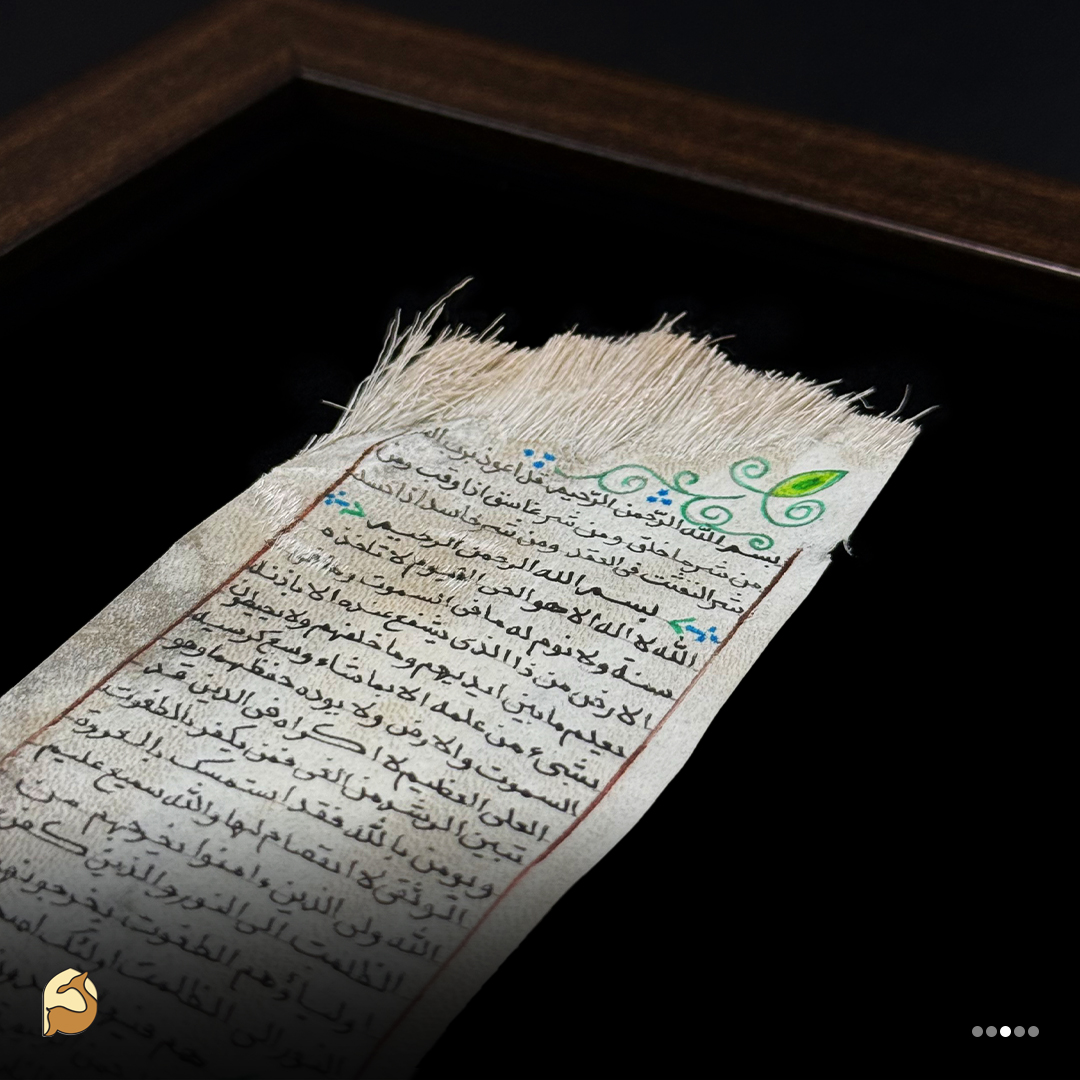 بسم الله الرحمن الرحيم قل اعوذ برب الفلق
من شر ما خلق ومن شر غاسق اذا وقب ومن
شر النفثت في العقد ومن شر حاسد اذا حسد
بسم الله الرحمن الرحيم
الله لا اله الا هو الحي القيوم لا تاخذه
سنة ولا نوم له ما في السموت وما في
الارض من ذا الذي يشفع عنده الا باذنه
يعلم ما بين ايديهم وما خلفهم ولا يحيطون
بشيء من علمه الا بما شاء وسع كرسيه
السموت والارض ولا يوده حفظهما وهو
العلي العظيم لا اكراه في الدين قد
تبين الرشد من الغي فمن يكفر بالطغوت
ويومن بالله فقد استمسك بالعروة
الوثقى لا انفصام لها والله سميع عليم
الله ولي الذين ءامنوا يخرجهم من
الظلمت الى النور والذين كفروا
اولياؤهم الطغوت يخرجونهم
النور الى الظلمت اولئك
هم فيها